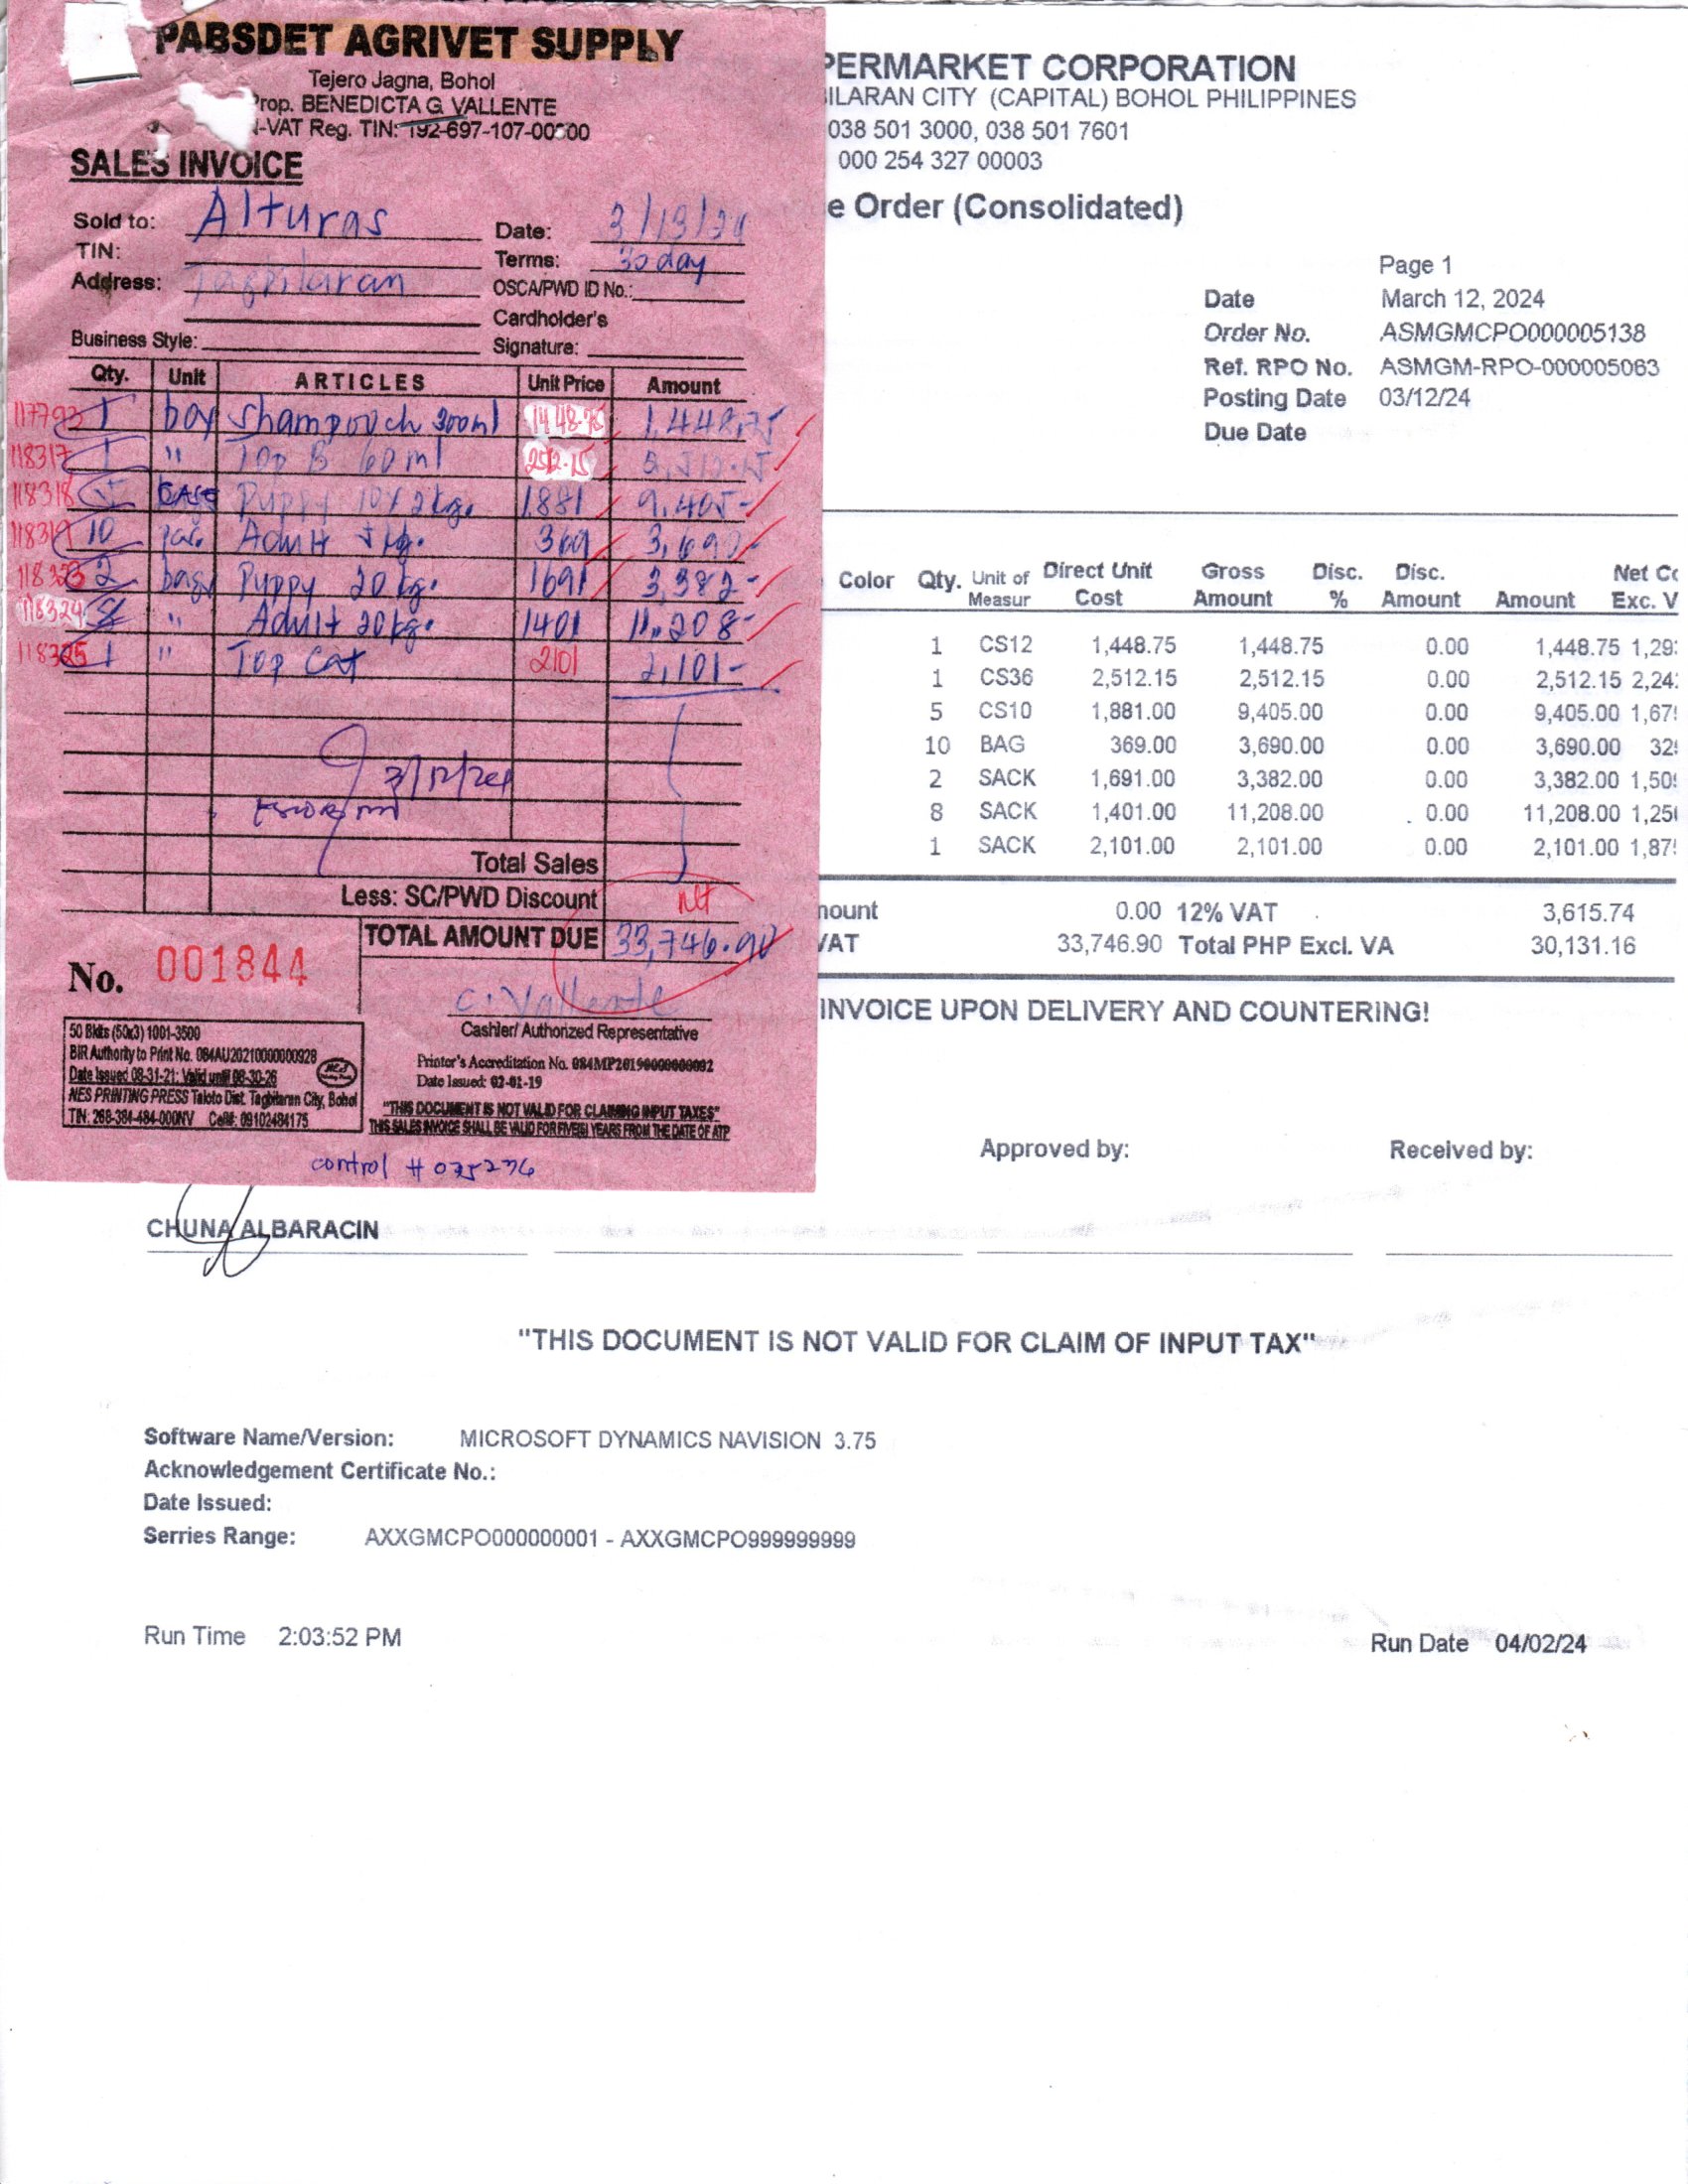 PABSDET AGRIVET SUPPLY
Tejero Jagna, Bohol
Prop. BENEDICTA G. VALLENTE
-VAT Reg. TIN: 192-697-107-00000
SALES INVOICE
Sold to: Alturas
Date: 3/13/24
TIN:
Terms: 30 day
Address: Tagbilaran
OSCA/PWD ID No.:
Cardholder's
Business Style:
Signature:
Qty. Unit ARTICLES Unit Price Amount
117793 1 box Shampooch 300ml 1448.75 1,448.75
118317 1 " Top B 60ml 2512.15 2,512.15
118318 5 CASE Puppy 10x2kg. 1881 9,405-
118319 10 Adult 5kg. 369 3,690-
2 bags Puppy 20kg. 1691 3,382-
118324 8 " Adult 20kg. 1401 11,208-
118325 1 " Top Cat 2101 2,101-
3/12/24
Total Sales
Less: SC/PWD Discount
TOTAL AMOUNT DUE 33,746.90
No. 001844
C. Vallente
Cashier/ Authorized Representative
50 Bklts (50x3) 1001-3500
BIR Authority to Print No. 084AU20210000000928
Date Issued 08-31-21; Valid until 08-30-26
NES PRINTING PRESS Taloto Dist. Tagbilaran City, Bohol
TIN: 268-384-484-000NV Cell#: 09102484175
Printor's Accreditation No. 084MP20190000000002
Date Issued: 02-01-19
"THIS DOCUMENT IS NOT VALID FOR CLAIMING INPUT TAXES"
THIS SALES INVOICE SHALL BE VALID FOR FIVE(5) YEARS FROM THE DATE OF ATP
control # 035276
PERMARKET CORPORATION
ILARAN CITY (CAPITAL) BOHOL PHILIPPINES
038 501 3000, 038 501 7601
000 254 327 00003
e Order (Consolidated)
Page 1
Date March 12, 2024
Order No. ASMGMCPO000005138
Ref. RPO No. ASMGM-RPO-000005063
Posting Date 03/12/24
Due Date
Color Qty. Unit of Measur Direct Unit Cost Gross Amount Disc. % Disc. Amount Amount Net Co Exc. V
1 CS12 1,448.75 1,448.75 0.00 1,448.75 1,29
1 CS36 2,512.15 2,512.15 0.00 2,512.15 2,24
5 CS10 1,881.00 9,405.00 0.00 9,405.00 1,67
10 BAG 369.00 3,690.00 0.00 3,690.00 32
2 SACK 1,691.00 3,382.00 0.00 3,382.00 1,50
8 SACK 1,401.00 11,208.00 0.00 11,208.00 1,25
1 SACK 2,101.00 2,101.00 0.00 2,101.00 1,87
nount 0.00 12% VAT 3,615.74
VAT 33,746.90 Total PHP Excl. VA 30,131.16
INVOICE UPON DELIVERY AND COUNTERING!
Approved by: Received by:
CHUNA ALBARACIN
"THIS DOCUMENT IS NOT VALID FOR CLAIM OF INPUT TAX"
Software Name/Version: MICROSOFT DYNAMICS NAVISION 3.75
Acknowledgement Certificate No.:
Date Issued:
Serries Range: AXXGMCPO000000001 - AXXGMCPO999999999
Run Time 2:03:52 PM
Run Date 04/02/24